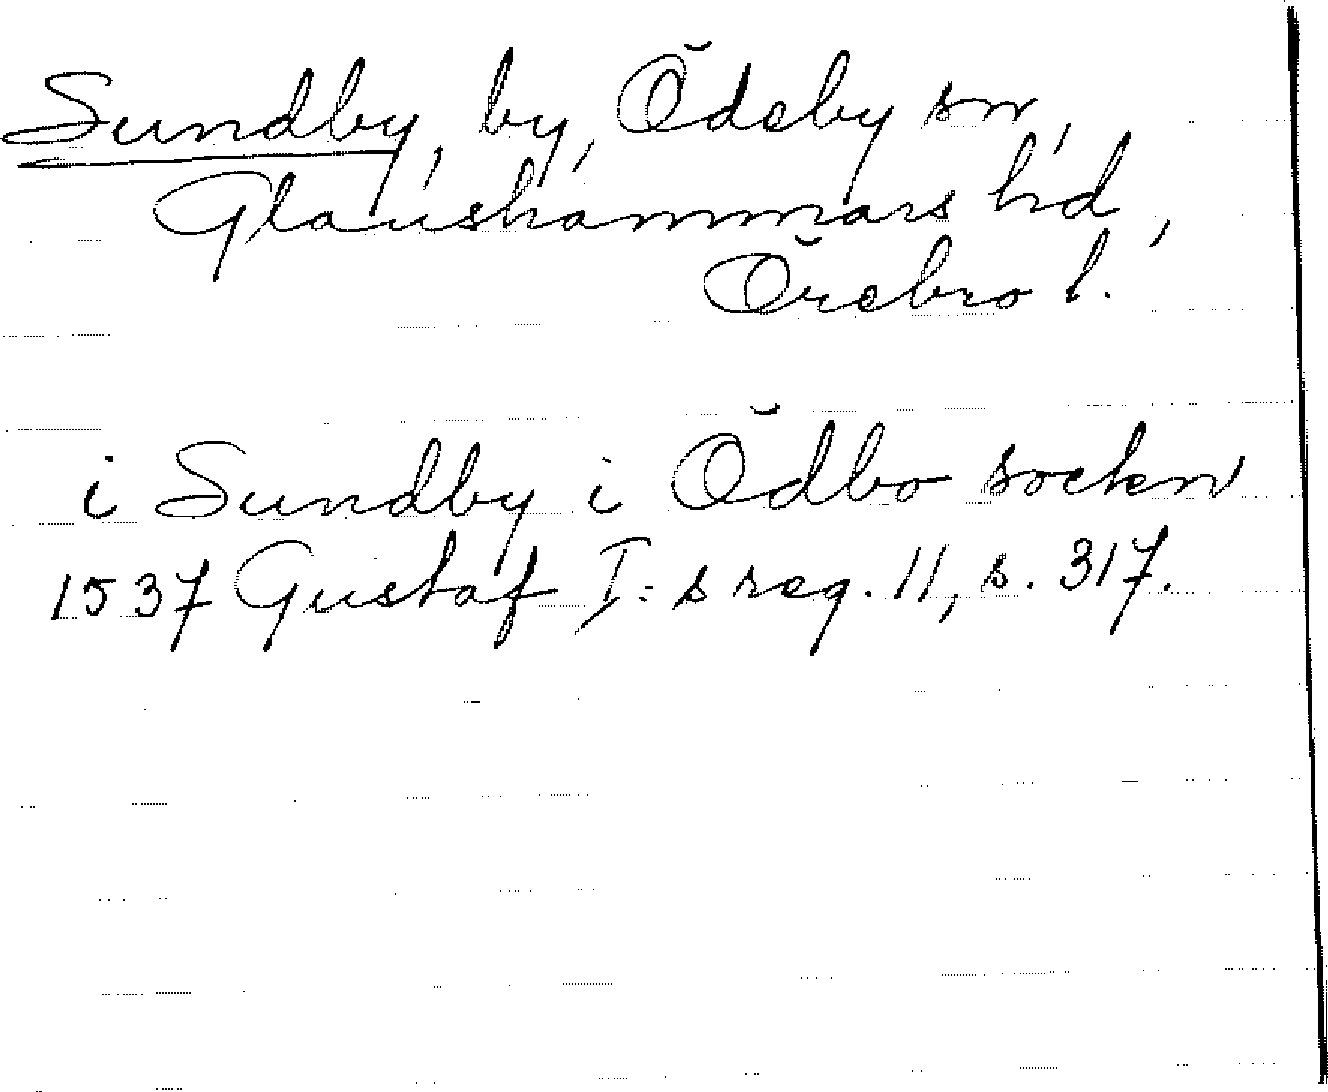 Sundby, by, Ödeby sn,
Glanshammars hd,
Örebro l.
i Sundby i Ödbo sockn
1537 Gustaf I:s reg. 11, s. 317.